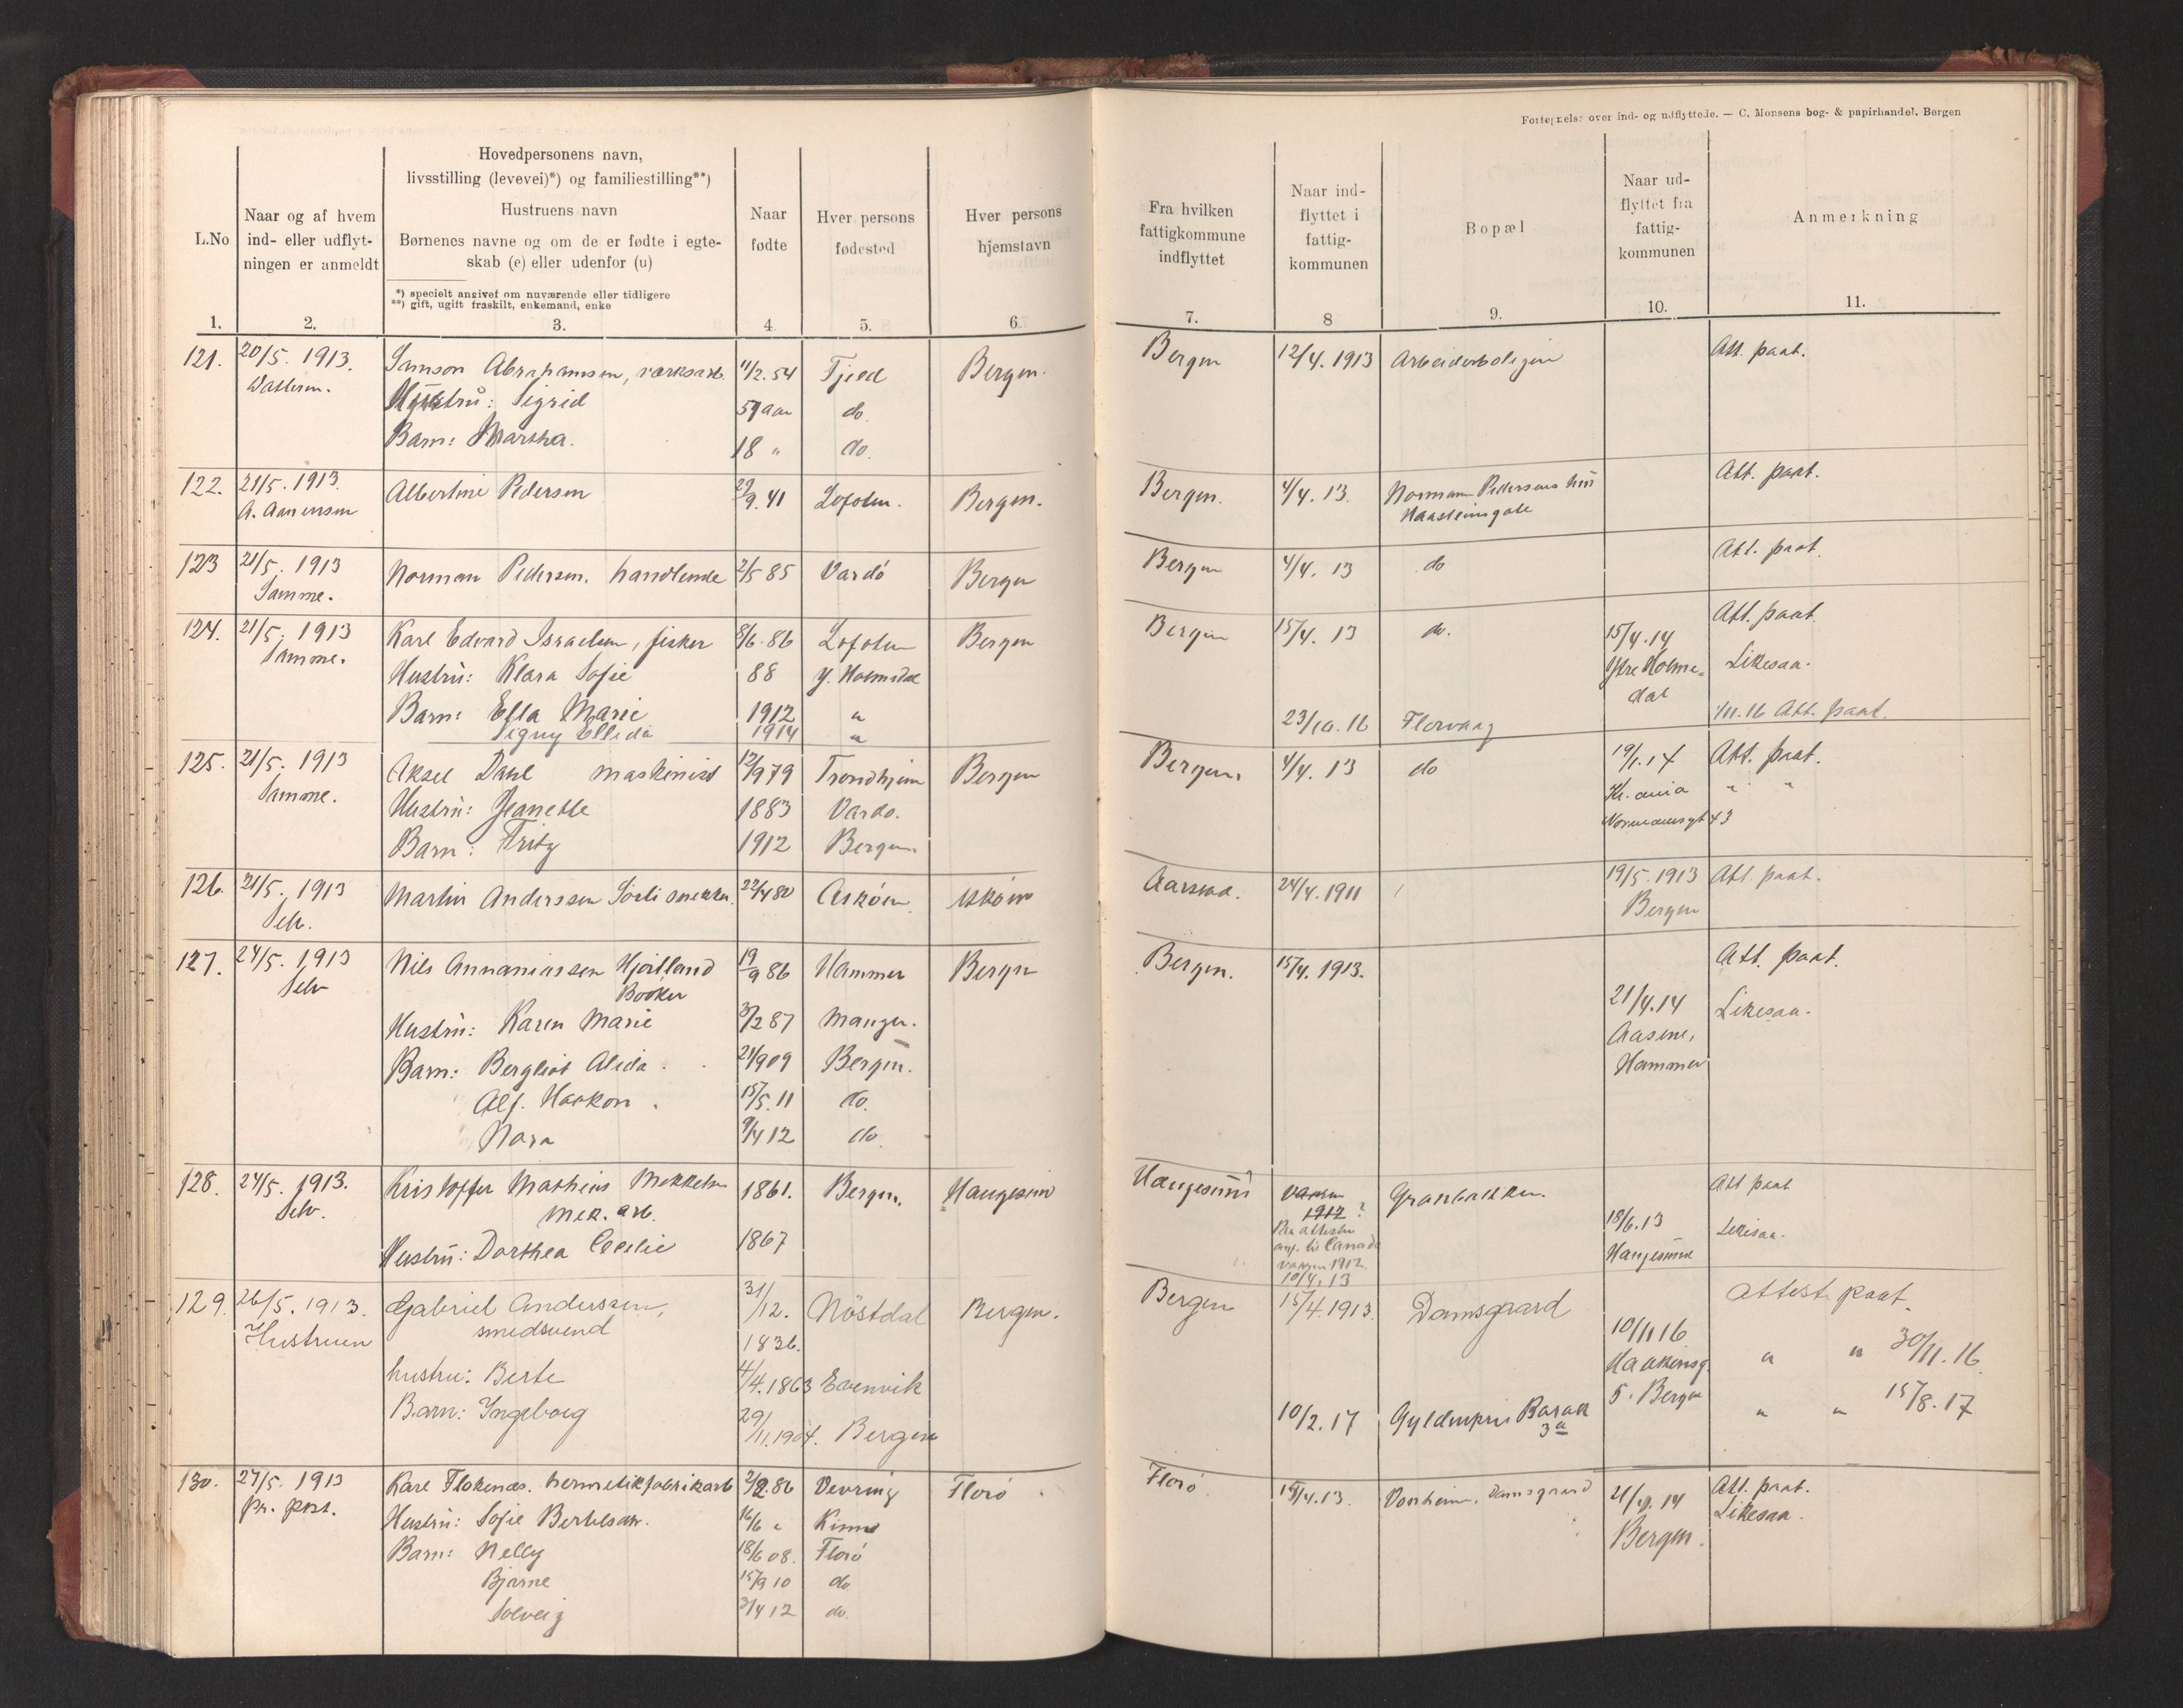 Fortegnelse over ind- og udflyttede. — C. Monsens bog- & papirhandel. Bergen
L.No
Naar og af hvem
ind- eller udflyt-
ningen er anmeldt
Hovedpersonens navn,
livsstilling (levevei)*) og familiestilling**)
Hustruens navn
Børnenes navne og om de er fødte i egte-
skab (e) eller udenfor (u)
*) specielt angivet om nuværende eller tidligere
**) gift, ugift fraskilt, enkemand, enke
Naar
fødte
Hver persons
fødested
Hver persons
hjemstavn
Fra hvilken
fattigkommune
indflyttet
Naar ind-
flyttet i
fattig-
kommunen
Bopæl
Naar ud-
flyttet fra
fattig-
kommunen
Anmerkning
1. 2. 3. 4. 5. 6. 7. 8 9. 10. 11.
121. 20/5. 1913. Samson Abrahamsen, værksarb. 11/2. 54 Fjeld Bergen. Bergen 12/4. 1913 Arbeiderboligen Att. paat.
Hustru: Sigrid 51 aar do.
Barn: Martha. 18 " do.
122. 21/5. 1913. Albertine Pedersen 29/9. 41 Lofoten. Bergen. Bergen. 4/4. 13. Normann Pedersens hus Att. paat.
A. Aanensen Haasteinsgate
123 21/5. 1913 Norman Pedersen, handlende 2/5 85 Vardö Bergen Bergen 4/4. 13 do Att. paat.
Samme.
124. 21/5. 1913 Karl Edvard Israelsen, fisker 8/6. 86 Lofoten Bergen Bergen 15/4. 13 do. 15/4. 14 Att. paat.
Samme. Hustru: Klara Sofie 88 Y. Holmedal Ytre Holme- Likesaa.
dal
Barn: Ella Marie 1912 " 23/10. 16 Florvaag 1/11. 16 Att. paat.
Signy Ellida 1914 "
125. 21/5. 1913 Aksel Dahl maskinist 12/9 79 Trondhjem Bergen Bergen. 4/4. 13 do 19/1. 14 Att. paat.
Samme. Hustru: Jeanette 1883 Vardo. Kr. ania " "
Barn: Fritz 1912 Bergen. Normannsgt 43
126. 21/5. 1913 Martin Anderssen Sörli snekker. 22/4 80 Askøen. Askøen Aarstad. 24/4. 1911 19/5. 1913 Att. paat.
Selv. Bergen
127. 24/5. 1913 Nils Annaniassen Hjertland 19/9 86 Hammer Bergen Bergen. 15/4. 1913. Att. paat.
Selv Bødker
Hustru: Karen Marie 3/2 87 Manger. 21/4. 14 Likesaa.
Barn: Bergliot Alida. 21/9 09 Bergen. Aasene,
Hammer
Alf. Haakon. 15/5. 11 do.
Nora 9/4 12 do.
128. 24/5. 1913. Kristoffer Mathias Mekkelsen 1861. Bergen. Haugesund Haugesund Vaaren Granbakken. Att paat
Selv. mek. arb. 1912 ?
Paa attesten 18/6. 13 Likesaa.
Hustru: Dorthea Cecilie 1867 ang. til Canada Haugesund
vaaren 1912
10/4. 13
129. 26/5. 1913. Gabriel Anderssen, 31/12. Nöstdal Bergen. Bergen 15/4. 1913. Damsgaard Attest. paat.
Hustruen smedsvend 1836. 10/11 16
hustru: Berte 4/4. 1863 Evenvik Haakonsg. " " 30/11. 16
5. Bergen
Barn: Ingeborg 29/11. 1904. Bergen 10/2. 17 Gyldenpris Barak " " 15/8. 17
3a
130. 27/5. 1913 Karl Flokenæs. hermetikfabrikarb 2/2. 86 Vevring Florö Florö 15/4. 13. Vonheim, Damsgaard 21/4. 14 Att. paat.
pr. post. Hustru: Sofie Bertelsen. 16/6 " Kinn Bergen. Likesaa.
Barn: Nelly 18/6 08. Florö
Bjarne 15/9 10 do
Solveig 3/4 12 do.